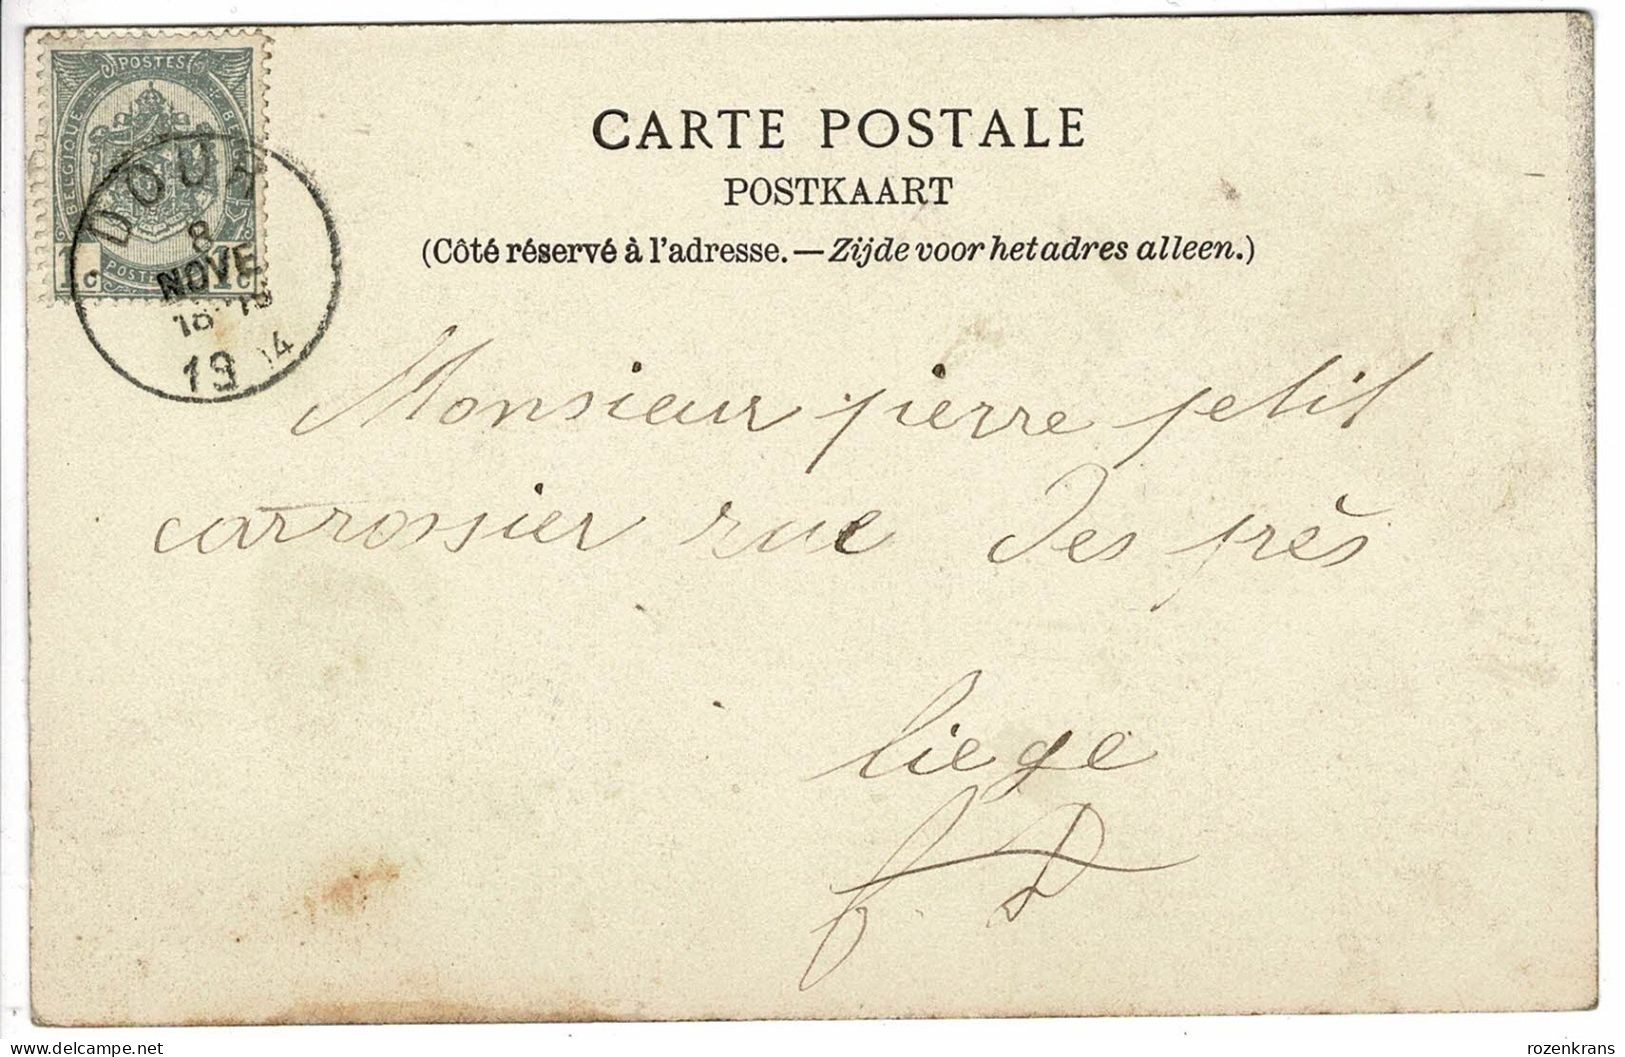 POSTES
BELGIQUE
1c 1c
DOUR
8
NOVE
19 14
CARTE POSTALE
POSTKAART
(Côté réservé à l'adresse. — Zijde voor het adres alleen.)
Monsieur pierre petit
carrossier rue des près
liege
delcampe.net
rozenkrans